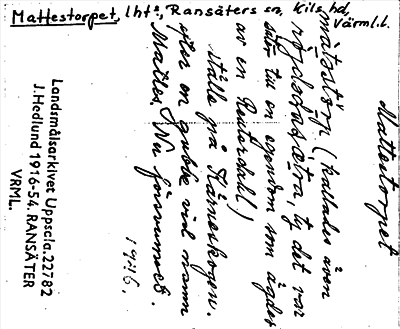 Mattestorpet, lht., Ransäters sn, Kils hd, Värml. l.
Mattestorpet
(kallades även
ty det var
säter till en egendom som ägdes
av en Reuterdahl)
ställe på Håneskogen.
efter en gubbe vid namn
Mattes. Nu försvunnet.
1946.
Landsmålsarkivet Uppsala. 22782
J. Hedlund 1916-54. RANSÄTER
VRML.